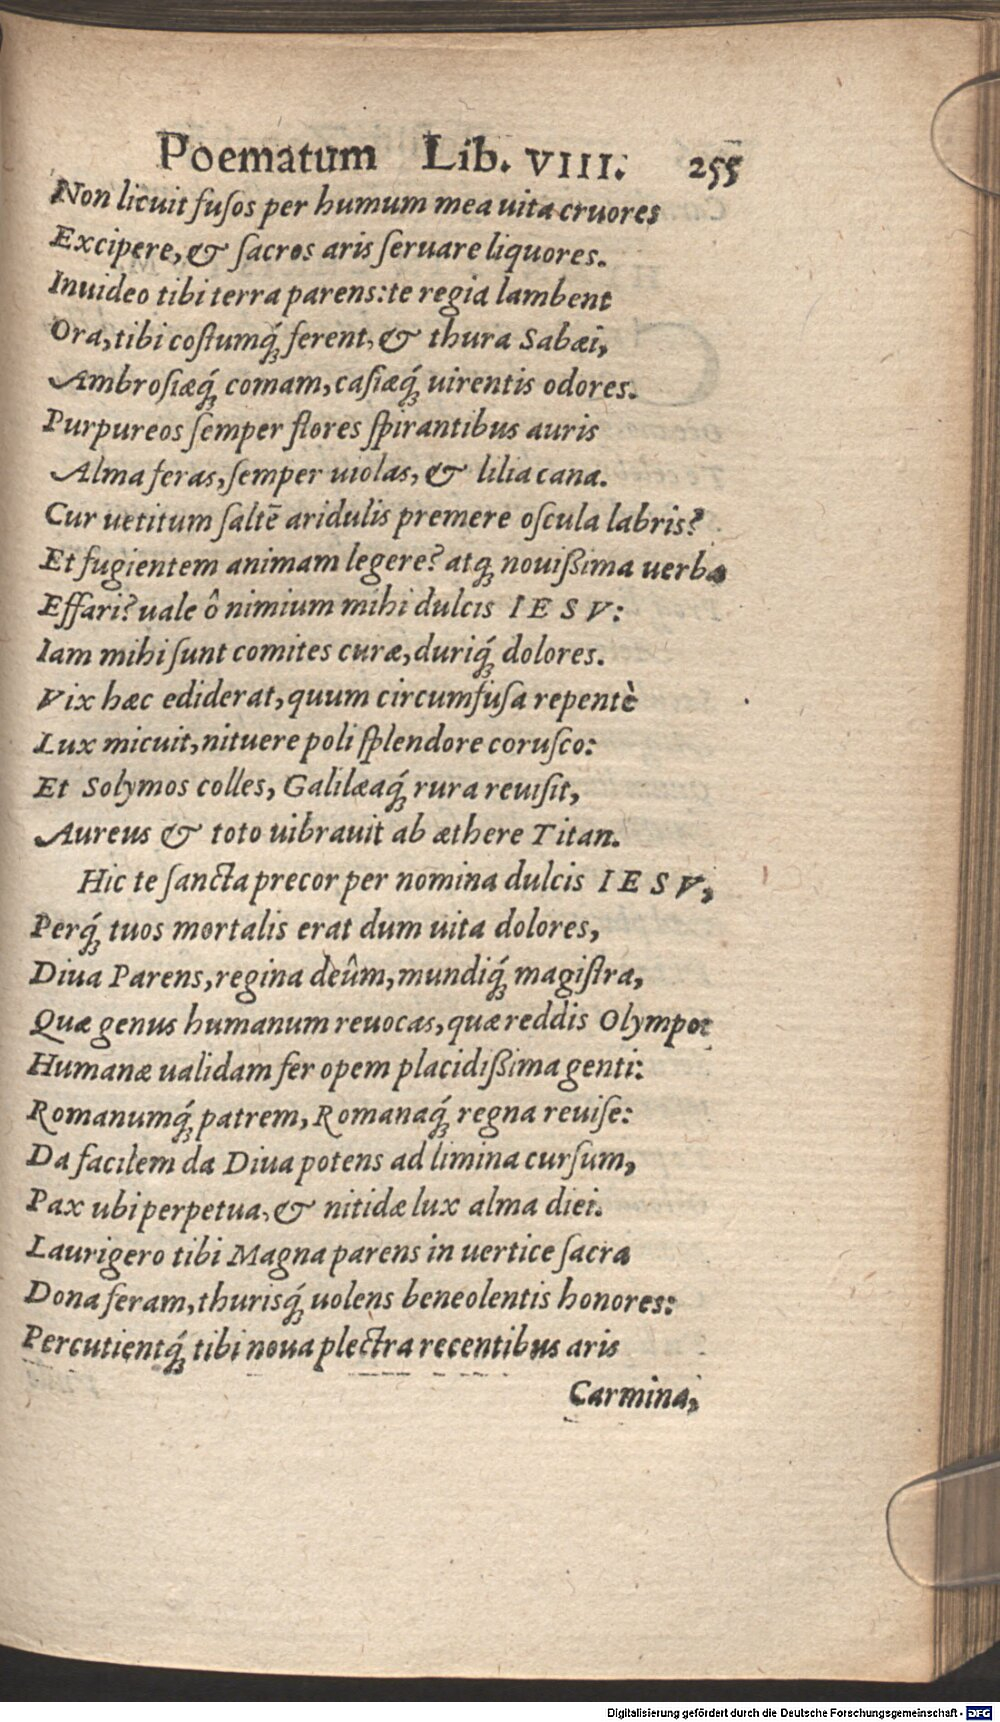 Poematum Lib. VIII. 255
Non licuit fuſos per humum mea uita cruores
Excipere, & ſacros aris ſeruare liquores.
Inuideo tibi terra parens: te regia lambent
Ora, tibi coſtumq́; ferent, & thura Sabæi,
Ambroſiæq́; comam, caſiæq́; uirentis odores.
Purpureos ſemper flores ſpirantibus auris
Alma feras, ſemper uiolas, & lilia cana.
Cur uetitum ſaltē aridulis premere oſcula labris?
Et fugientem animam legere? atq; nouißima uerba
Effari? uale ô nimium mihi dulcis IESV:
Iam mihi ſunt comites curæ, duriq́; dolores.
Vix hæc ediderat, quum circumfuſa repentè
Lux micuit, nituere poli ſplendore coruſco:
Et Solymos colles, Galilæaq́; rura reuiſit,
Aureus & toto uibrauit ab æthere Titan.
Hic te ſancta precor per nomina dulcis IESV,
Perq́; tuos mortalis erat dum uita dolores,
Diua Parens, regina deûm, mundiq́; magiſtra,
Quæ genus humanum reuocas, quæ reddis Olympo:
Humanæ ualidam fer opem placidißima genti:
Romanumq́; patrem, Romanaq́; regna reuiſe:
Da facilem da Diua potens ad limina curſum,
Pax ubi perpetua, & nitidæ lux alma diei.
Laurigero tibi Magna parens in uertice ſacra
Dona feram, thurisq́; uolens beneolentis honores:
Percutientq́; tibi noua plectra recentibus aris
Carmina,
Digitalisierung gefördert durch die Deutsche Forschungsgemeinschaft - DFG